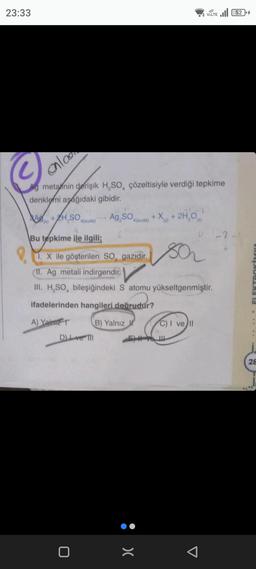 23:33
62
Ag metalinin derişik H₂SO₄ çözeltisiyle verdiği tepkime
denklemi aşağıdaki gibidir.
2Ag(k) + 2H₂SO₄(suda) → Ag₂SO₄(suda) + X(g) + 2H₂O(s)
Bu tepkime ile ilgili;
I. X ile gösterilen SO₂ gazıdır.
SO₂
II. Ag metali indirgendir.
III. H₂SO₄ bileşiğindeki S atomu yükseltgenmiştir.
ifadelerinden hangileri doğrudur?
A) Yalnız I
B) Yalnız II
C) I ve II
D) I ve III
E) II ve III
28